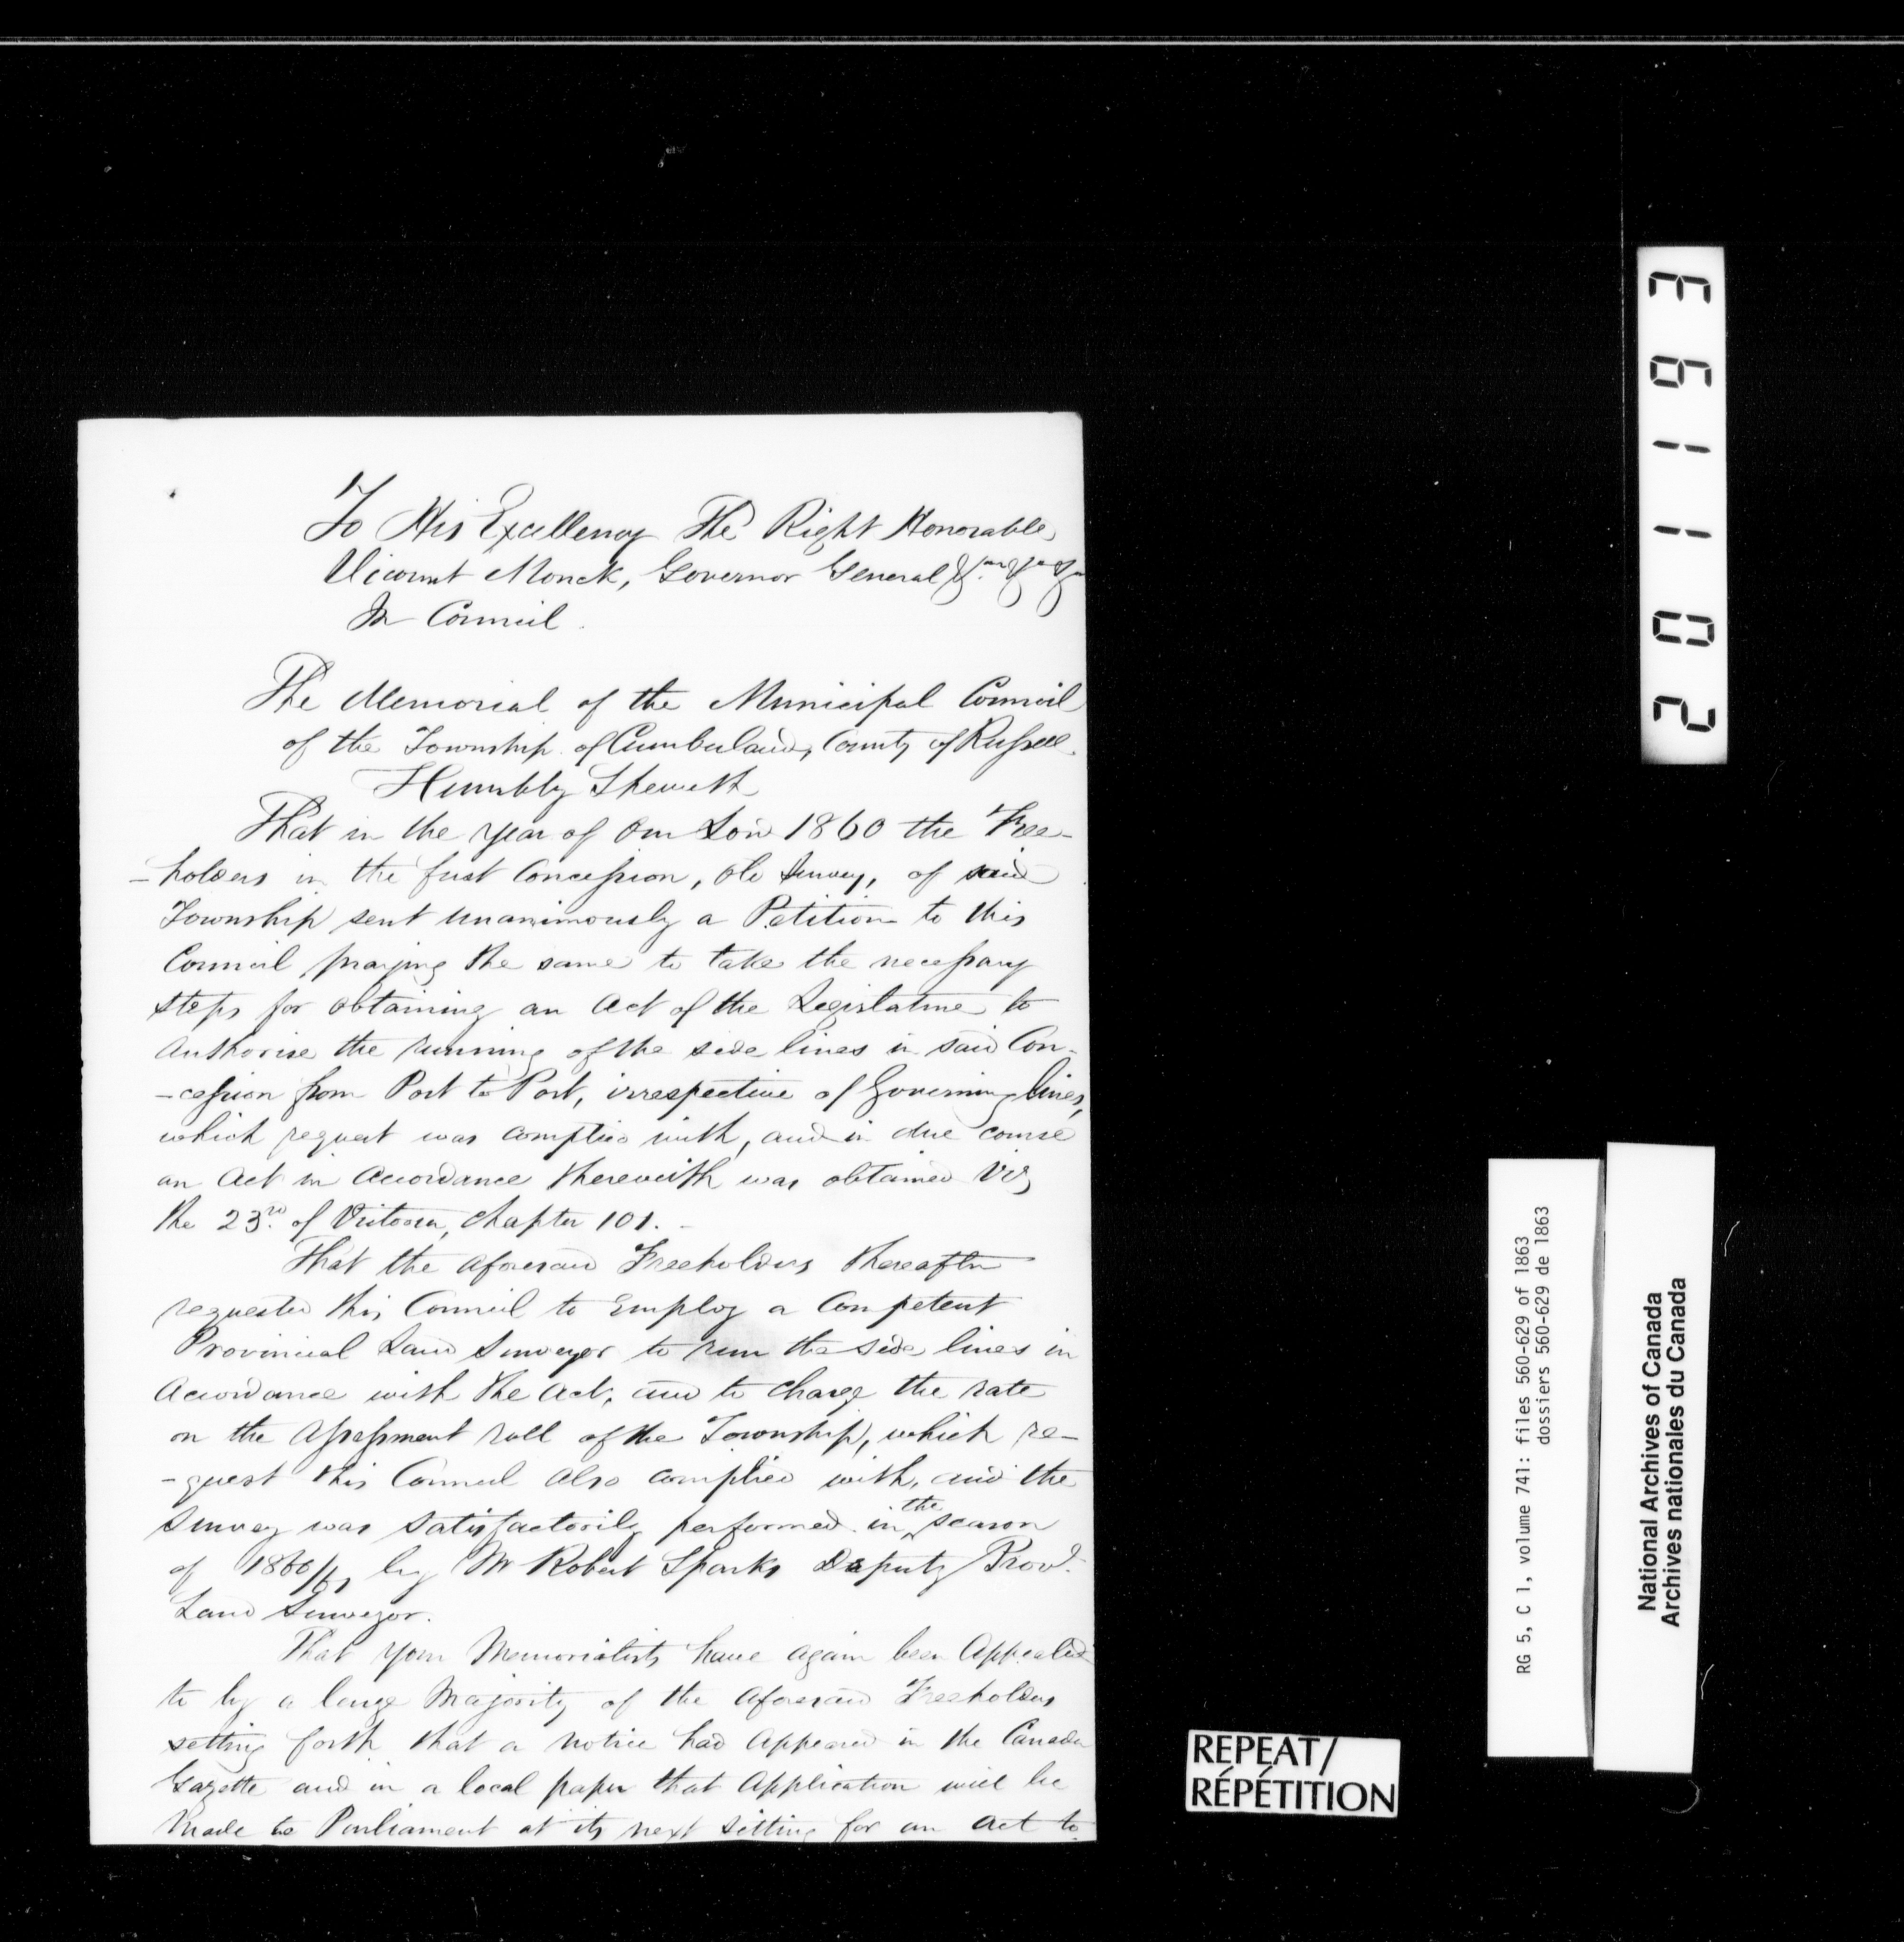 To His Excellency The Right Honorable
Vicount Monck, Governor General &c &c &c
In Council.
The Memorial of the Municipal Council
of the Township of Cumberland, County of Russell
Humbly Sheweth
That in the year of Our Lord 1860 the Free-
-holders in the first Concession, old Survey, of said
Township sent unanimously a Petition to this
Council praying the same to take the necessary
steps for obtaining an Act of the Legislature to
Authorise the running of the side lines in said Con-
-cession from Post to Post, irrespective of Governing lines,
which request was complied with, and in due course
an Act in Accordance therewith was obtained Viz
the 23rd of Victoria, Chapter 101.-
That the aforesaid Freeholders thereafter
requested this Council to Employ a Competent
Provincial Land Surveyor to run the side lines in
Accordance with the Act, and to charge the rate
on the Assessment roll of the Township, which re-
-quest this Council also complied with, and the
Survey was satisfactorily performed in the season
of 1860/61 by Mr Robert Sparks Deputy Provl
Land Surveyor.
That your Memorialists have again been Appealed
to by a large Majority of the aforesaid Freeholders
setting forth that a notice had Appeared in the Canada
Gazette and in a local paper that Application will be
made to Parliament at its next sitting for an Act to
201193
RG 5, C 1, volume 741: files 560-629 of 1863
dossiers 560-629 de 1863
National Archives of Canada
Archives nationales du Canada
REPEAT/
RÉPÉTITION